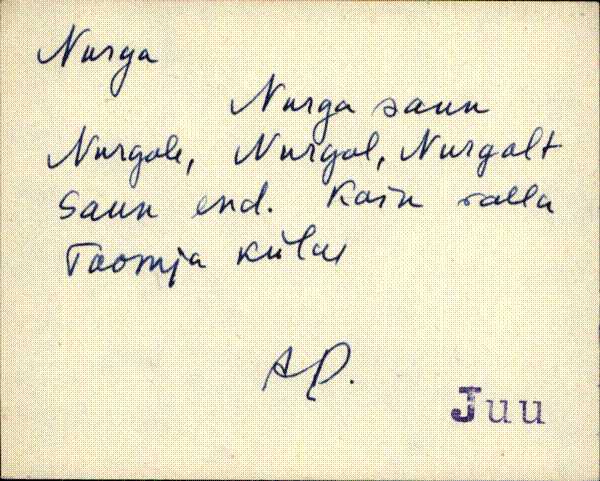 Nurga
Nurga saun
Nurgale, Nurgal, Nurgalt
Saun end. Kain valla
Toomja külas
AP.
Juu